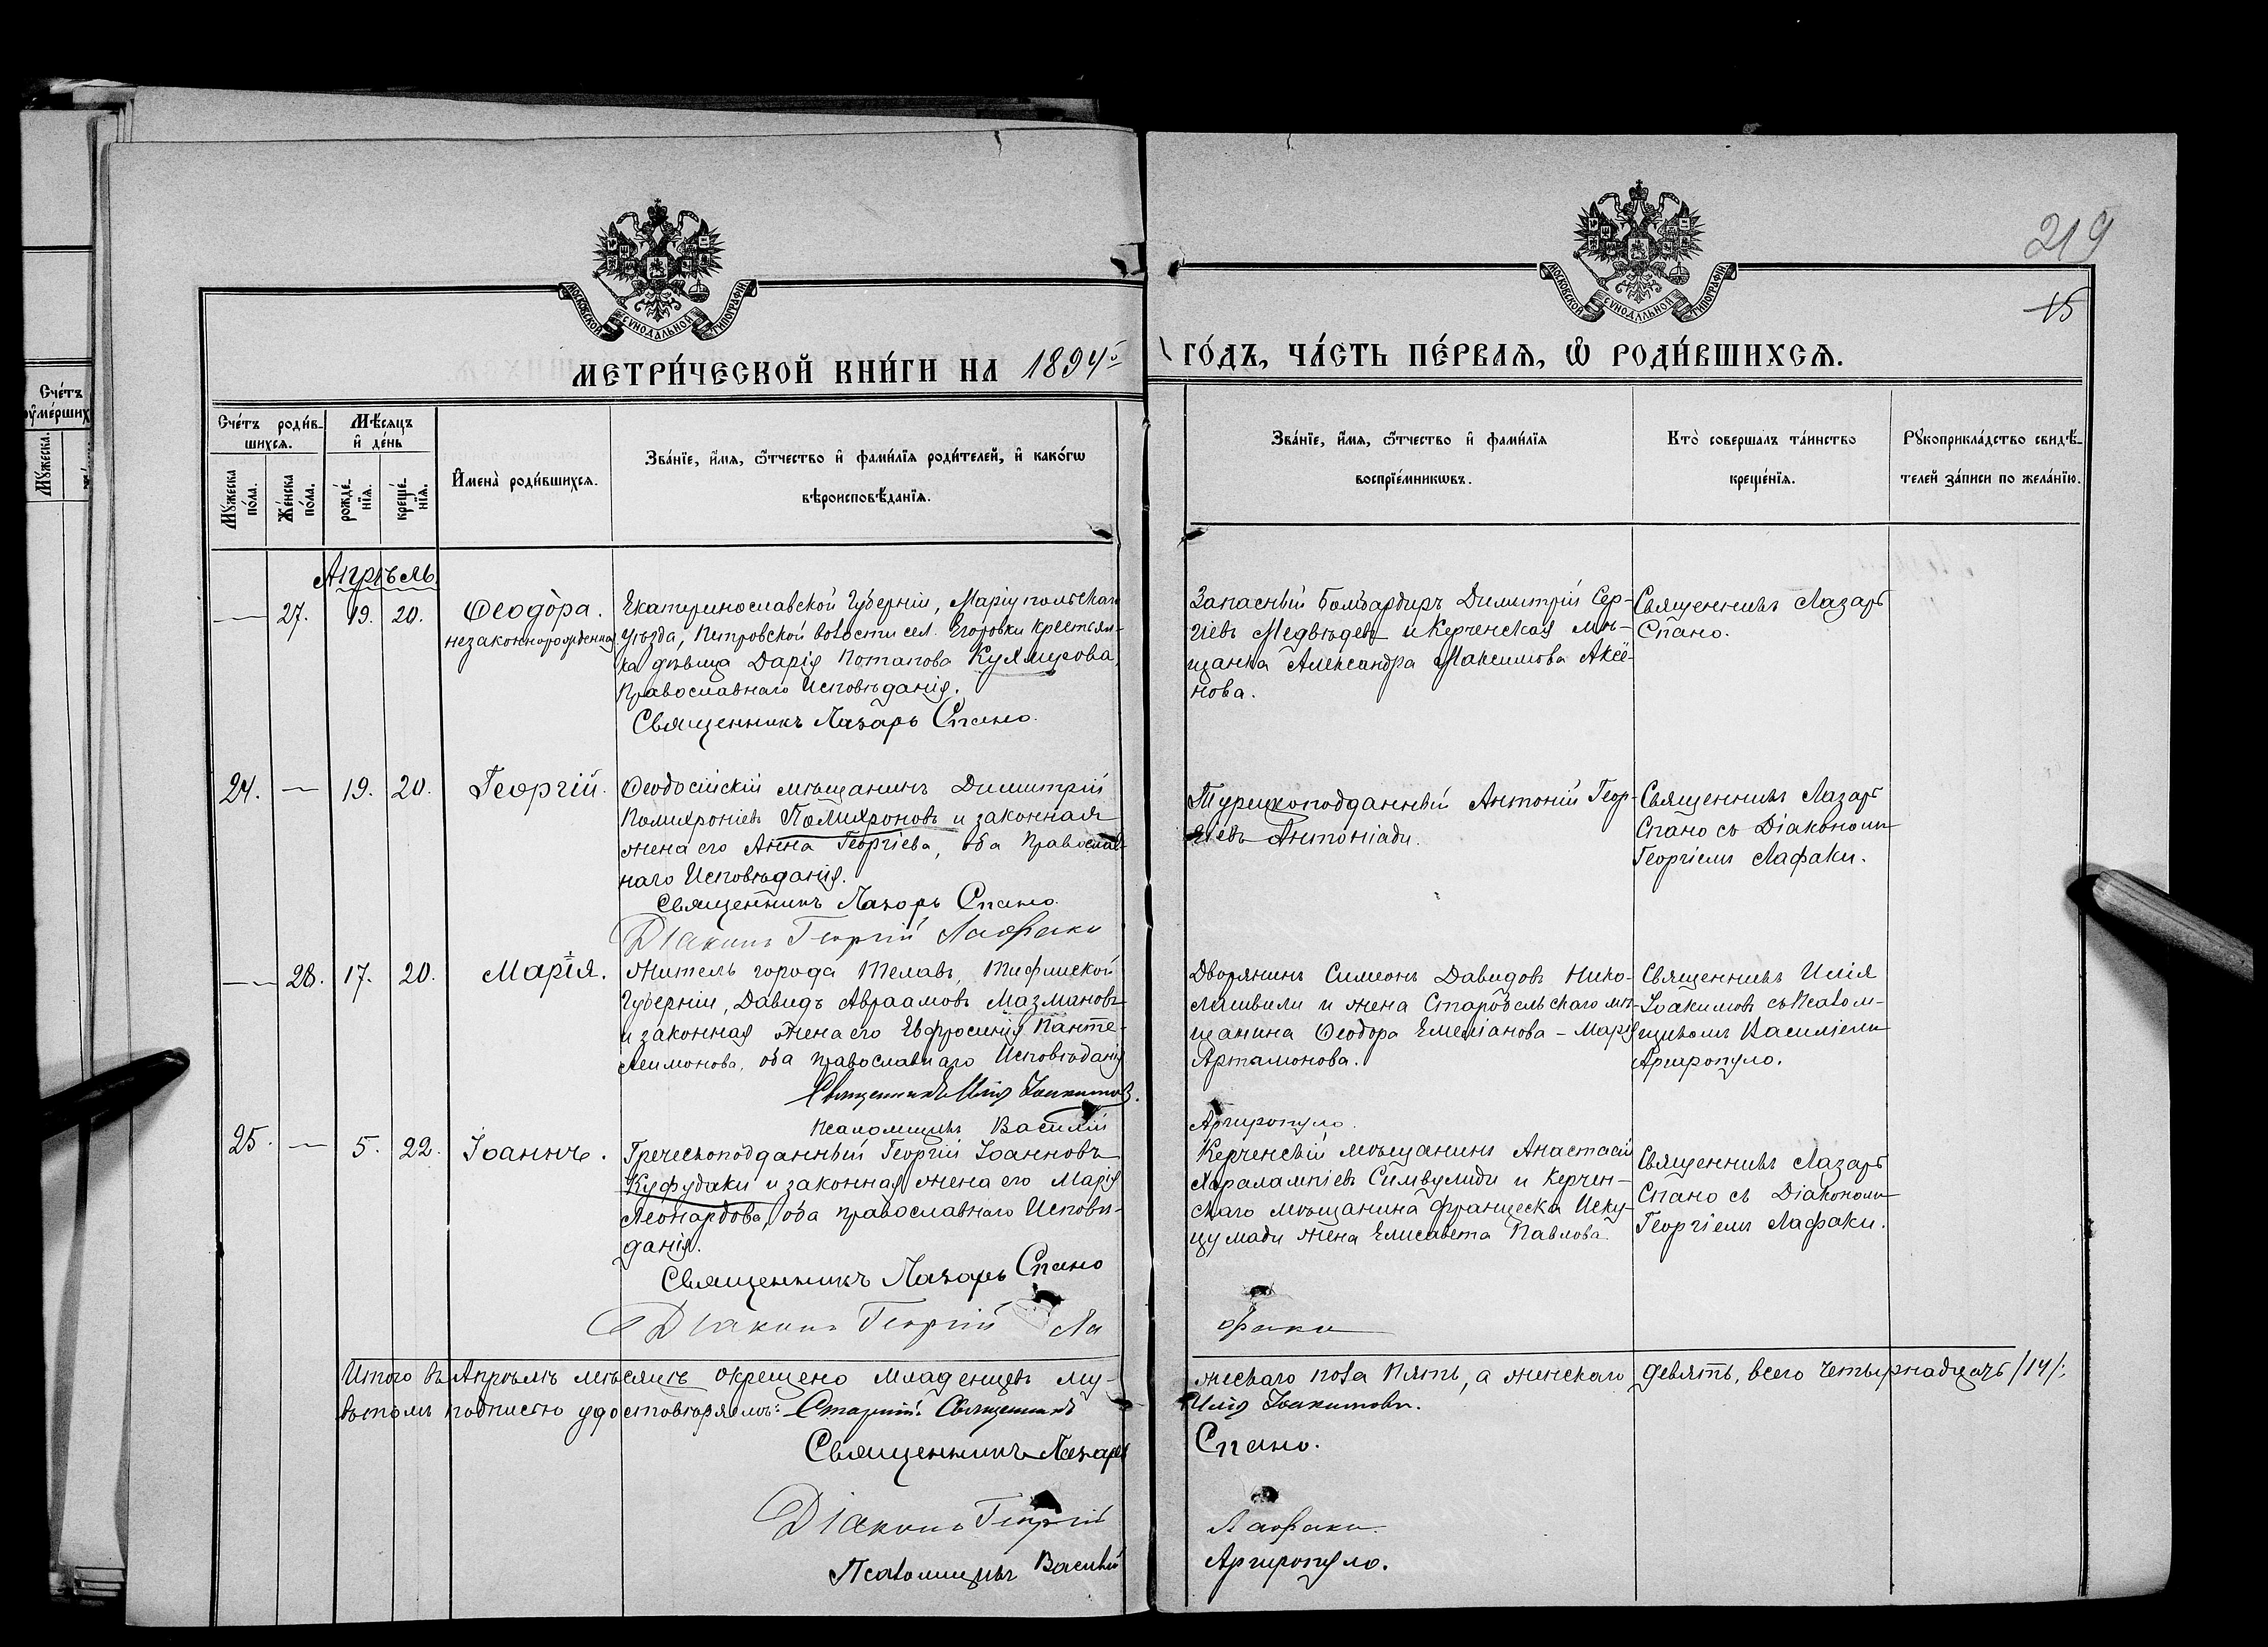 219
15
МОСКОВСКОЙ СУНОДАЛЬНОЙ ТИПОГРАФІИ
МОСКОВСКОЙ СУНОДАЛЬНОЙ ТИПОГРАФІИ
МЕТРИ́ЧЕСКОЙ КНИ́ГИ НА 1894й ГО́ДЪ, ЧА́СТЬ ПЕ́РВАѦ, Ѡ҆ РОДИ́ВШИХСѦ.
Сче́тъ ᲂу҆ме́рших
Мꙋ́жеска.
Сче́тъ роди́в-
шихсѧ.
Мꙋ́жеска по́ла.
Же́нска по́ла.
Мѣ́сѧцъ
и҆ де́нь
рожде́-
нїѧ.
креще́-
нїѧ.
И҆мена̀ роди́вшихсѧ.
Зва́нїе, и҆́мѧ, ѻ҆́тчество и҆ фами́лїѧ роди́телей, и҆ како́гѡ
вѣроисповѣ́данїѧ.
Зва́нїе, и҆́мѧ, ѻ҆́тчество и҆ фами́лїѧ
воспрїе́мникѡвъ.
Кто̀ соверша́лъ та́инство
креще́нїѧ.
Рꙋкоприкла́дство свидѣ́-
телей за́писи по жела́нїю.
Апрѣль.
— 27. 19. 20. Ѳеодо́ра.
незаконнорожденная
Екатеринославской губерніи, Маріупольскаго
уѣзда, Петровской волости сел. Егоровки крестьян-
ка дѣвица Дарія Потапова
Православнаго Исповѣданія.
Священникъ Лазарь Спано.
Запасный Бомбардиръ Димитрій Сер-
гіевъ Медвѣдевъ и Керченская мѣ-
щанка Александра Максимова Аксе-
нова.
Священникъ Лазарь
Спано.
24. — 19. 20. Георгій.
Ѳеодосійскій мѣщанинъ Димитрій
Полихроніевъ Полихроновъ и законная
жена его Анна Георгіева, оба Православ-
наго Исповѣданія.
Священникъ Лазарь Спано.
Діаконъ Георгій Лафаки
Турецкоподданный Антоній Геор-
гіевъ Антоніади.
Священникъ Лазарь
Спано съ Діакономъ
Георгіемъ Лафаки.
— 28. 17. 20. Марія.
Житель города Телавъ, Тифлиской
Губерніи, Давидъ Авраамовъ Мазмановъ
и законная жена его Евфросинія Панте-
леимонова, оба православнаго Исповѣданія
Священникъ Илія Іоакимовъ.
Псаломщикъ Василій
Аргиропуло.
Дворянинъ Симеонъ Давидовъ Нико-
лашвили и жена Старобельскаго мѣ-
щанина Ѳеодора Емеліанова - Марія
Артамонова.
Священникъ Илія
Іоакимовъ съ Псалом-
щикомъ Василіемъ
Аргиропуло.
25. — 5. 22. Іоаннъ.
Греческоподданный Георгій Іоанновъ
Куфудаки и законная жена его Марія
Леонардова, оба православнаго Исповѣ-
данія.
Священникъ Лазарь Спано
Діаконъ Георгій Ла
факи
Керченскій мѣщанинъ Анастасій
Харалампіевъ Симвулиди и Керчен-
скаго мѣщанина Франческа
жена Елисавета Павлова.
Священникъ Лазарь
Спано съ Діакономъ
Георгіемъ Лафаки.
Итого въ Апрѣлѣ мѣсяцѣ окрещено младенцевъ му-
жескаго пола пять, а женскаго девять, всего четырнадцать /14/:
въ томъ подписью удостовѣряемъ: Старшій Священникъ
Илія Іоакимовъ.
Священникъ Лазарь
Спано.
Діаконъ Георгій
Лафаки
Псаломщикъ Василій
Аргиропуло.